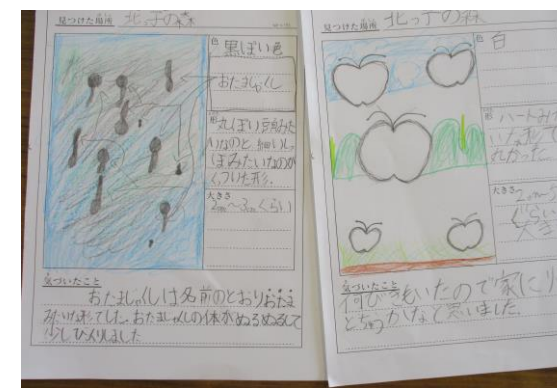 見つけた場所 北っ子の森
色 黒ぽい色
おたまじゃくし
形 丸ぽい豆みた
いなのと細いしっ
ぽみたいなのが
くっつけた形。
大きさ
2cm〜3cmくらい
気づいたこと
おたまじゃくしは名前のとおりおたま
みたいな形でした。おたまじゃくしの体がぬるぬるして
少しびっくりしました
見つけた場所 北っ子の森
色 白
形 ハートみた
いな形で
大きさ 2cm〜
ぐらい
気づいたこと
何びきもいたので家に
かなと思いました。